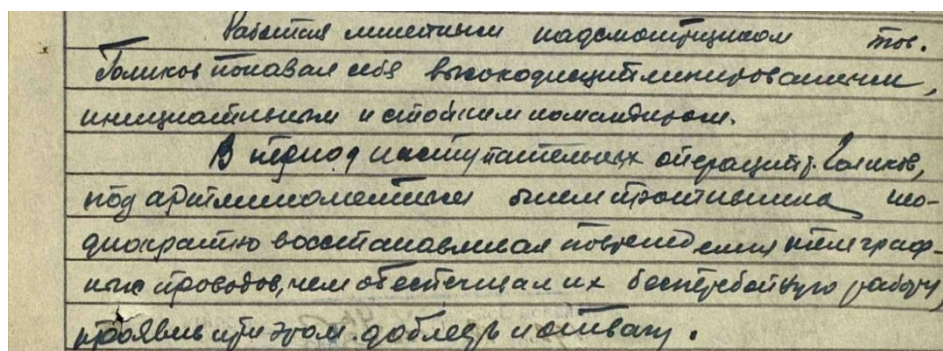 Работая линейным надсмотрщиком тов.
Голиков показал себя высокодисциплинированным,
инициативным и стойким командиром.
В период наступательных операций т. Голиков,
под артминометным огнем противника, не-
однократно восстанавливал повреждения телеграф-
ных проводов, чем обеспечивал их бесперебойную работу
проявив при этом доблесть и отвагу.